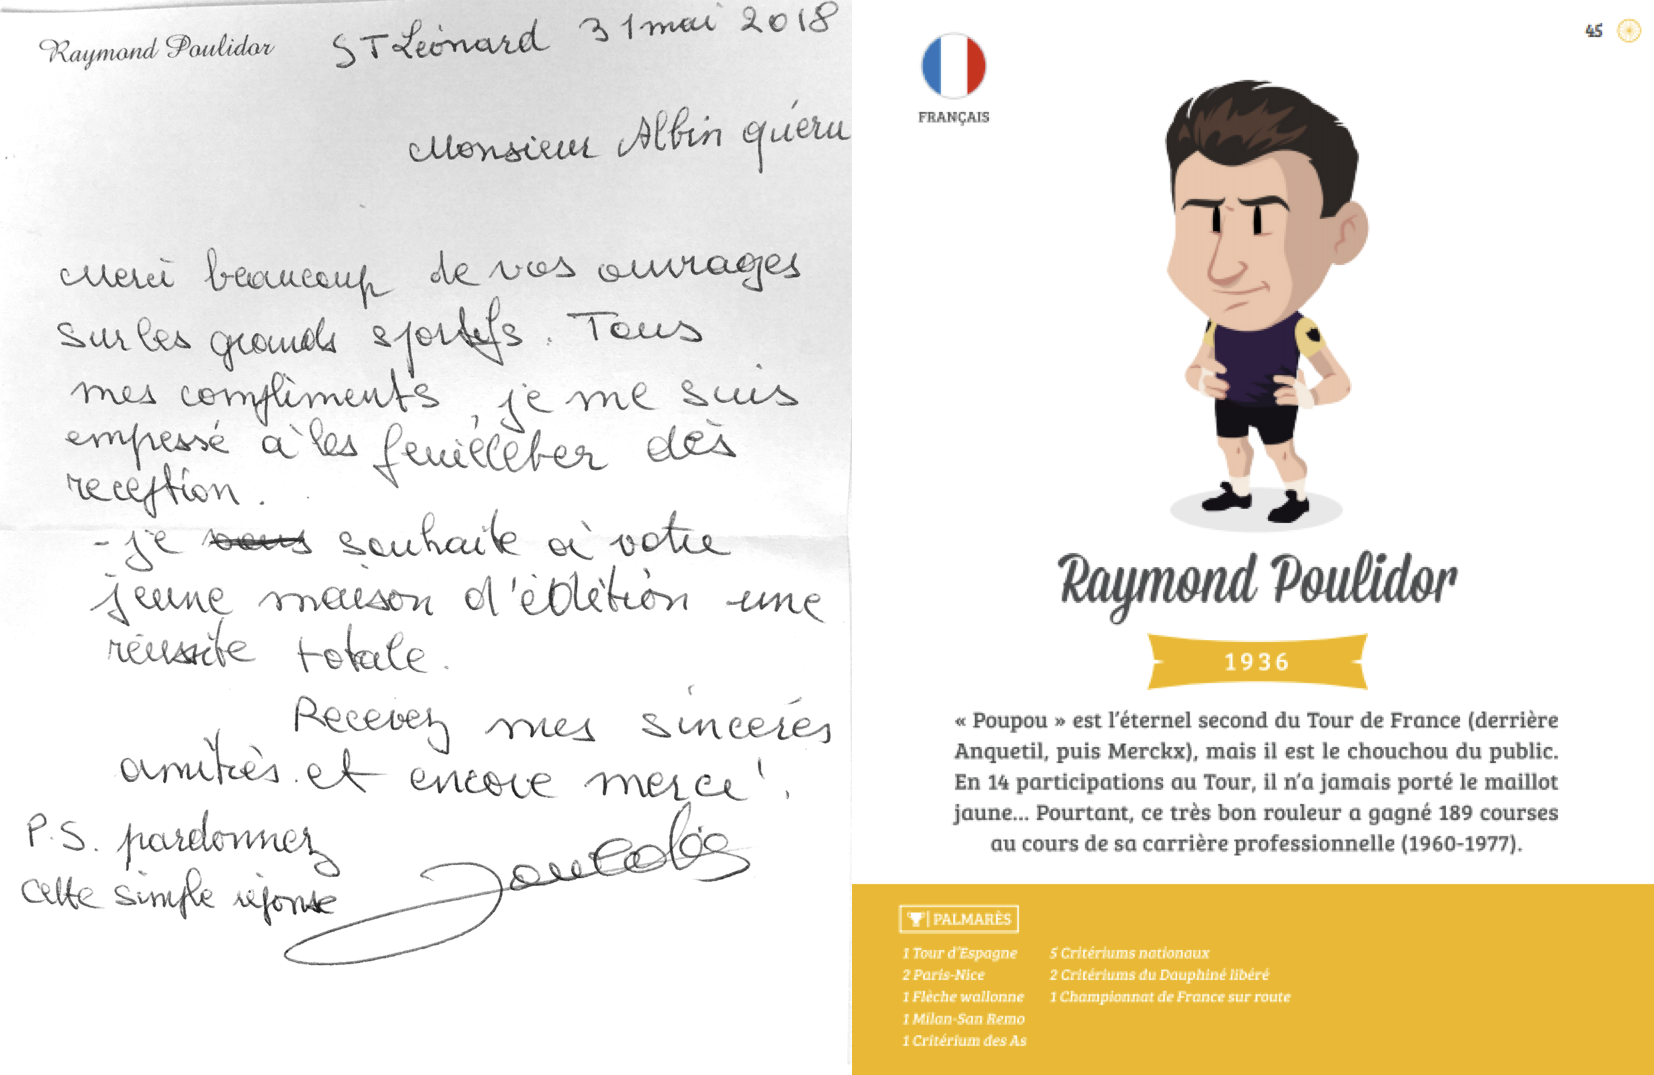 Raymond Poulidor
ST Léonard 31 mai 2018
Monsieur Albin Quéru
Merci beaucoup de vos ouvrages
sur les grands sportifs. Tous
mes compliments, je me suis
empessé à les feuilleter dès
reception.
- je vous souhaite à votre
jeune maison d'édition une
réussite totale.
Recevez mes sincères
amitiès et encore merci !
P.S. pardonnez
cette simple réponse
Poulidor
45
FRANÇAIS
Raymond Poulidor
1936
« Poupou » est l'éternel second du Tour de France (derrière
Anquetil, puis Merckx), mais il est le chouchou du public.
En 14 participations au Tour, il n'a jamais porté le maillot
jaune... Pourtant, ce très bon rouleur a gagné 189 courses
au cours de sa carrière professionnelle (1960-1977).
PALMARÈS
1 Tour d'Espagne
2 Paris-Nice
1 Flèche wallonne
1 Milan-San Remo
1 Critérium des As
5 Critériums nationaux
2 Critériums du Dauphiné libéré
1 Championnat de France sur route